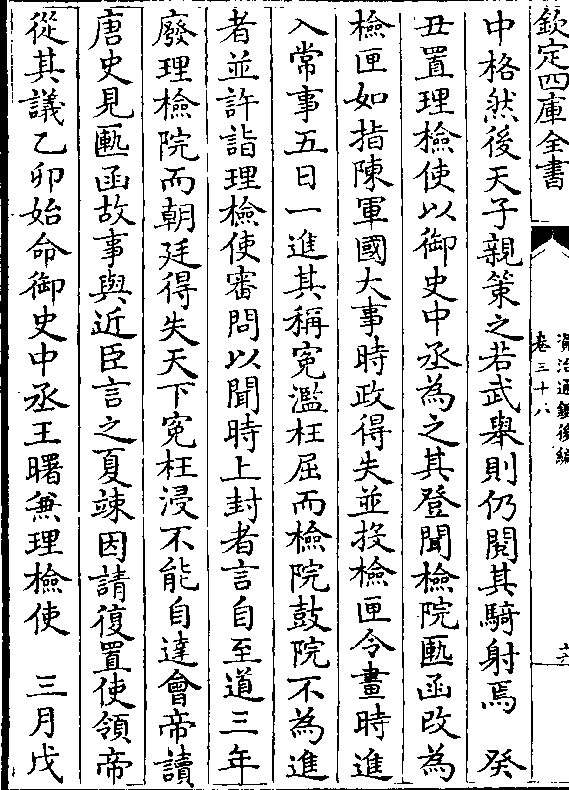 欽定四庫全書
資治通鑑後編
卷三十八
中格然後天子親策之若武舉則仍閱其騎射焉　癸
丑置理檢使以御史中丞為之其登聞檢院匭函改為
檢匣如指陳軍國大事時政得失並投檢匣令畫時進
入常事五日一進其稱寃濫枉屈而檢院鼓院不為進
者並許詣理檢使審問以聞時上封者言自至道三年
廢理檢院而朝廷得失天下寃枉浸不能自達會帝讀
唐史見匭函故事與近臣言之夏竦因請復置使領帝
從其議乙卯始命御史中丞王曙兼理檢使　三月戊